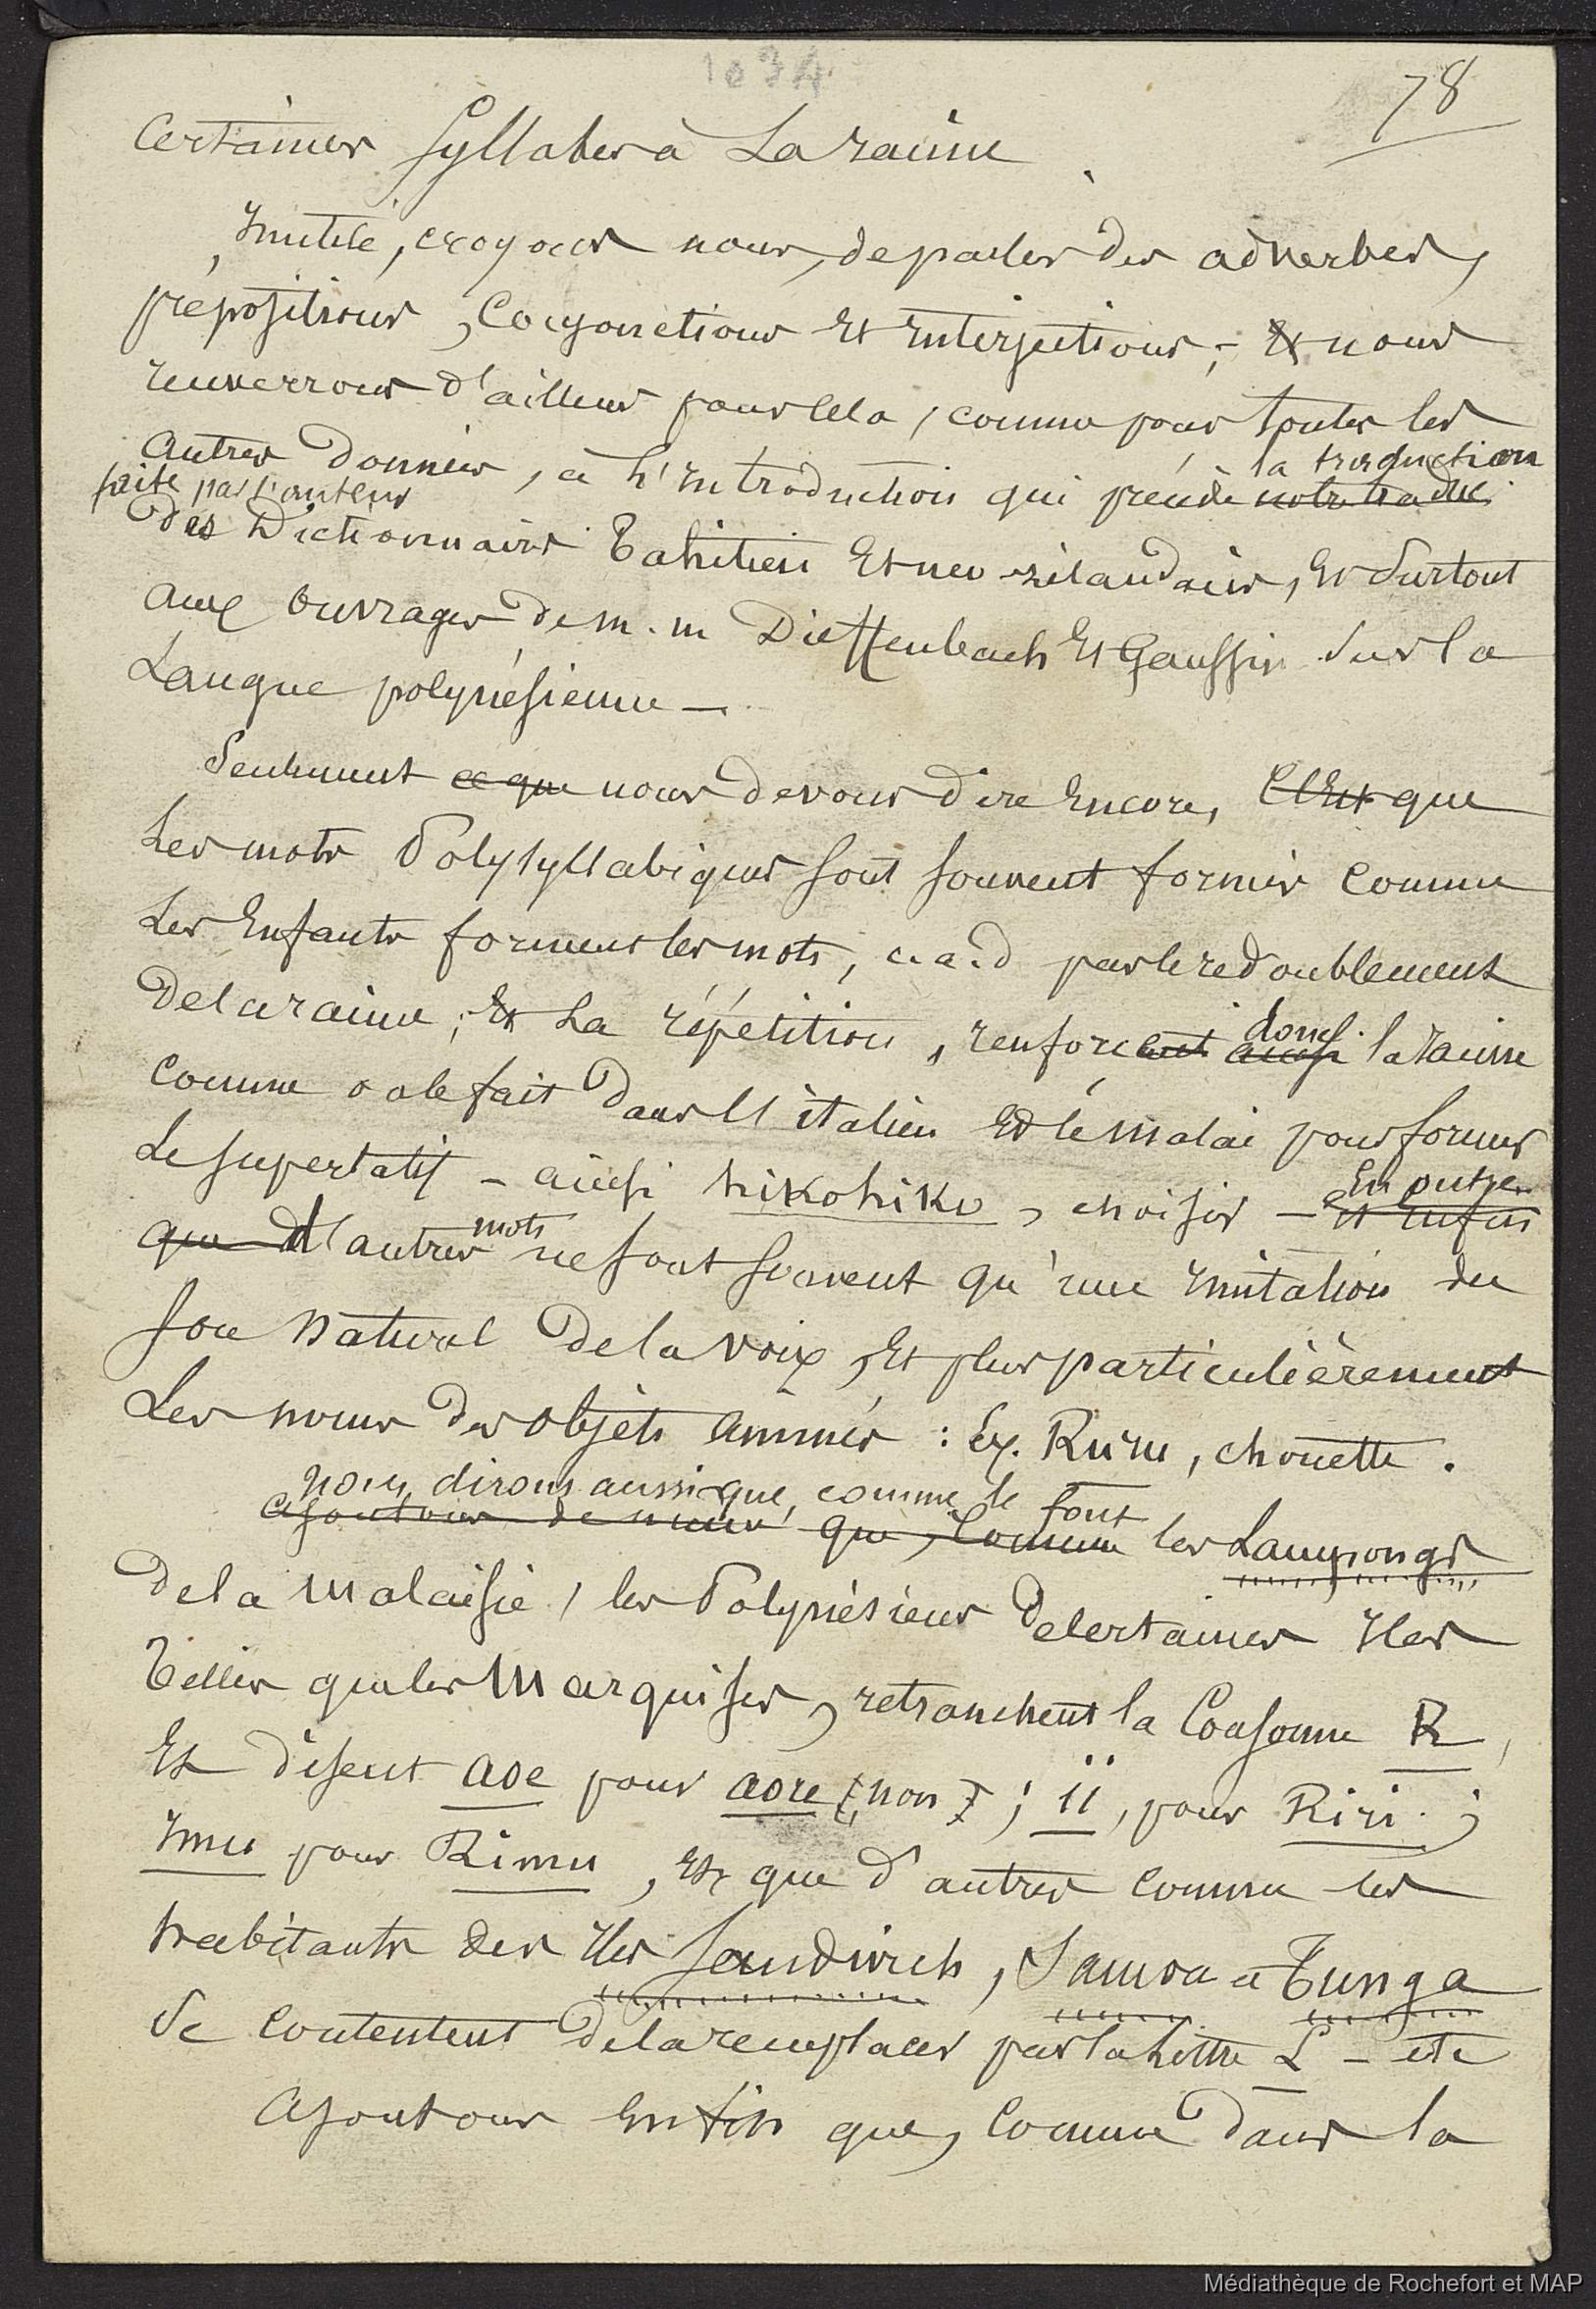 1034
78
Certaines syllabes à La racine
Inutile, croyons nous, de parler des adverbes,
prépositions, Conjonctions Et Interjections; - Et nous
renverrons d'ailleurs pour cela, comme pour toutes les
autres données, à L'Introduction qui précède notre traduc. la traduction
faite par l'auteur
des Dictionnaires Tahitien Et neo-zélandais, Et surtout
aux ouvrages de m. m Dieffenbach Et Gaussin sur la
Langue polynésienne —
Seulement ce que nous devons dire Encore, C'Est que
Les mots Polysyllabiques sont souvent formés comme
Les Enfants forment les mots, c. a. d par le redoublement
De la racine; Et La répétition, renforcent ainsi donc la racine
comme on le fait dans L'italien Et le malai pour former
Le superlatif - ainsi hikohiko, choisir — Et Enfin En outre
que D'autres mots ne sont souvent qu'une Imitation du
son naturel De la voix, Et plus particulièrement
Les noms des objets animés : Ex. Ruru, chouette.
nous dirons aussi que, comme le font
ajoutons de même que, Comme les Lampongs
De la malaisie, les Polynésiens De certaines Iles
Telles que les Marquises, retranchent la Consonne R,
Et disent aoe pour aore (non); ii, pour Riri;
Imu pour Rimu, Et que d'autres comme les
habitants des Iles Sandwich, Samoa et Tunga
se contentent de la remplacer par la Lettre L - etc
Ajoutons Enfin que, Comme dans la
Médiathèque de Rochefort et MAP